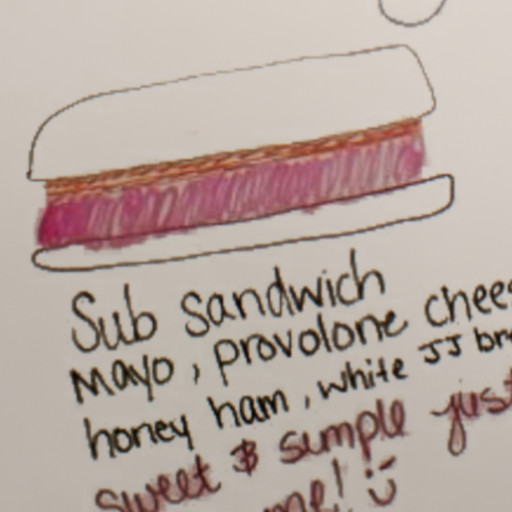 Sub sandwich
Mayo, provolone chees
honey ham, white JJ br
sweet & simple just
me! :)